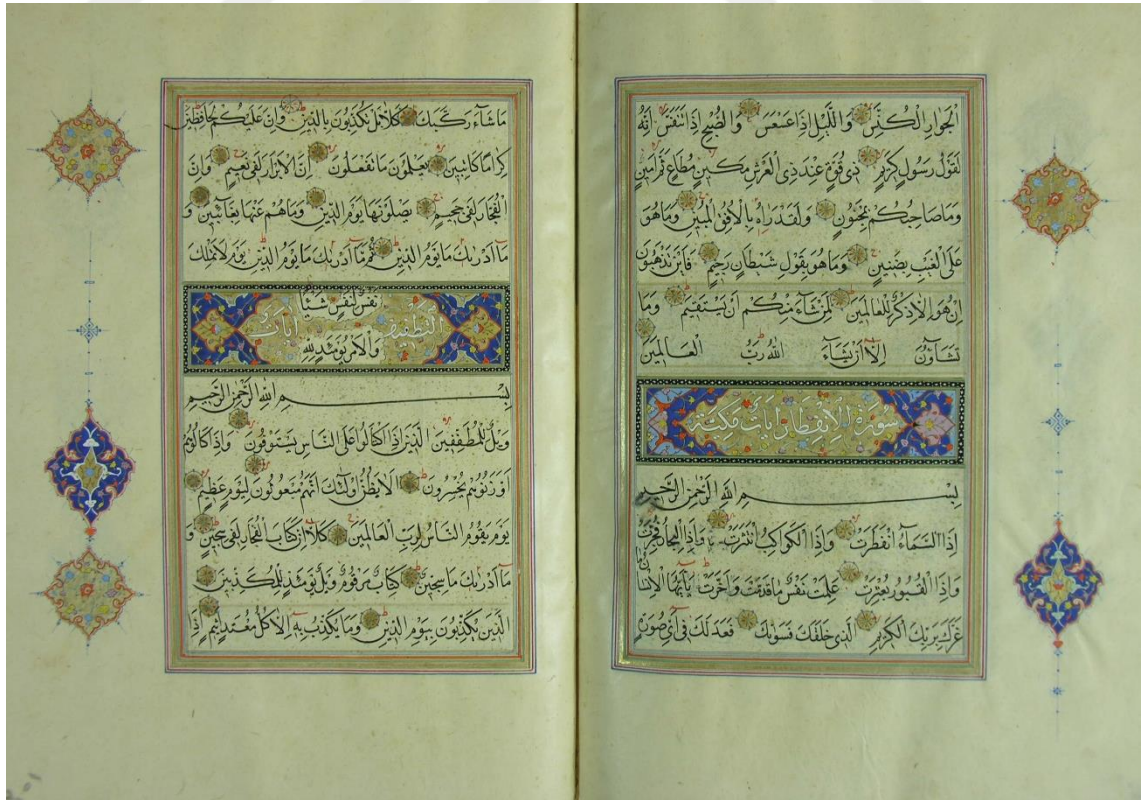 الْجَوَارِ الْكُنَّسِ وَاللَّيْلِ إِذَا عَسْعَسَ وَالصُّبْحِ إِذَا تَنَفَّسَ إِنَّهُ
لَقَوْلُ رَسُولٍ كَرِيمٍ ذِي قُوَّةٍ عِنْدَ ذِي الْعَرْشِ مَكِينٍ مُطَاعٍ ثَمَّ أَمِينٍ
وَمَا صَاحِبُكُمْ بِمَجْنُونٍ وَلَقَدْ رَآهُ بِالْأُفُقِ الْمُبِينِ وَمَا هُوَ
عَلَى الْغَيْبِ بِضَنِينٍ وَمَا هُوَ بِقَوْلِ شَيْطَانٍ رَجِيمٍ فَأَيْنَ تَذْهَبُونَ
إِنْ هُوَ إِلَّا ذِكْرٌ لِلْعَالَمِينَ لِمَنْ شَاءَ مِنْكُمْ أَنْ يَسْتَقِيمَ وَمَا
تَشَاؤُنَ إِلَّا أَنْ يَشَاءَ اللَّهُ رَبُّ الْعَالَمِينَ
سُورَةُ الْاِنْفِطَارِ آيَاتٌ مَكِّيَّةٌ
بِسْمِ اللَّهِ الرَّحْمَنِ الرَّحِيمِ
إِذَا السَّمَاءُ انْفَطَرَتْ وَإِذَا الْكَوَاكِبُ انْتَثَرَتْ وَإِذَا الْبِحَارُ فُجِّرَتْ
وَإِذَا الْقُبُورُ بُعْثِرَتْ عَلِمَتْ نَفْسٌ مَا قَدَّمَتْ وَأَخَّرَتْ يَا أَيُّهَا الْإِنْسَانُ مَا
غَرَّكَ بِرَبِّكَ الْكَرِيمِ الَّذِي خَلَقَكَ فَسَوَّيكَ فَعَدَلَكَ فِي أَيِّ صُورَةٍ
مَا شَاءَ رَكَّبَكَ كَلَّا بَلْ تُكَذِّبُونَ بِالدِّينِ وَإِنَّ عَلَيْكُمْ لَحَافِظِينَ
كِرَامًا كَاتِبِينَ يَعْلَمُونَ مَا تَفْعَلُونَ إِنَّ الْأَبْرَارَ لَفِي نَعِيمٍ وَإِنَّ
الْفُجَّارَ لَفِي جَحِيمٍ يَصْلَوْنَهَا يَوْمَ الدِّينِ وَمَا هُمْ عَنْهَا بِغَائِبِينَ وَ
مَا أَدْرَيكَ مَا يَوْمُ الدِّينِ ثُمَّ مَا أَدْرَيكَ مَا يَوْمُ الدِّينِ يَوْمَ لَا تَمْلِكُ
نَفْسٌ لِنَفْسٍ شَيْئًا
التَّطْفِيفِ آيَاتٌ
وَالْأَمْرُ يَوْمَئِذٍ لِلَّهِ
بِسْمِ اللَّهِ الرَّحْمَنِ الرَّحِيمِ
وَيْلٌ لِلْمُطَفِّفِينَ الَّذِينَ إِذَا اكْتَالُوا عَلَى النَّاسِ يَسْتَوْفُونَ وَإِذَا كَالُوهُمْ
أَوْ وَزَنُوهُمْ يُخْسِرُونَ أَلَا يَظُنُّ أُولَئِكَ أَنَّهُمْ مَبْعُوثُونَ لِيَوْمٍ عَظِيمٍ
يَوْمَ يَقُومُ النَّاسُ لِرَبِّ الْعَالَمِينَ كَلَّا إِنَّ كِتَابَ الْفُجَّارِ لَفِي سِجِّينٍ وَ
مَا أَدْرَيكَ مَا سِجِّينٌ كِتَابٌ مَرْقُومٌ وَيْلٌ يَوْمَئِذٍ لِلْمُكَذِّبِينَ
الَّذِينَ يُكَذِّبُونَ بِيَوْمِ الدِّينِ وَمَا يُكَذِّبُ بِهِ إِلَّا كُلُّ مُعْتَدٍ أَثِيمٍ إِذَا